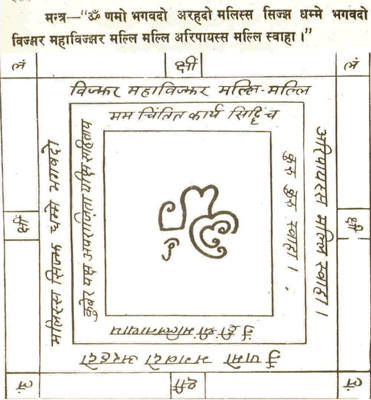 मन्त्र—“ॐ णमो भगवदो अरहदो मलिस्स सिज्झ धम्मे भगवदो
विज्झर महाविज्झर मल्लि मल्लि अरिपायस्स मल्लि स्वाहा।”
लं क्षी लं
विज्झर महाविज्झर मल्लि-मल्लि
मम चिंतित कार्य सिद्धिं च
अरिपायस्स मल्लि स्वाहा।
कुरु कुरु स्वाहा।
मलिस्स सिज्झ धम्मे भगवदो
कुबेर यक्ष अपराजिता यक्षि सहिताय
क्षी क्षी
ॐ ह्रीं श्रीं मल्लिनाथाय
ॐ णमो भगवदो अरहदो
लं क्षी लं